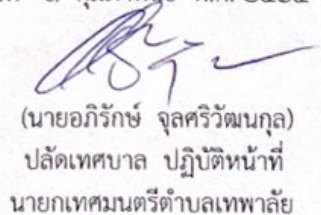 (นายอภิรักษ์ จุลศริวัฒนกุล)
ปลัดเทศบาล ปฏิบัติหน้าที่
นายกเทศมนตรีตำบลเทพาลัย